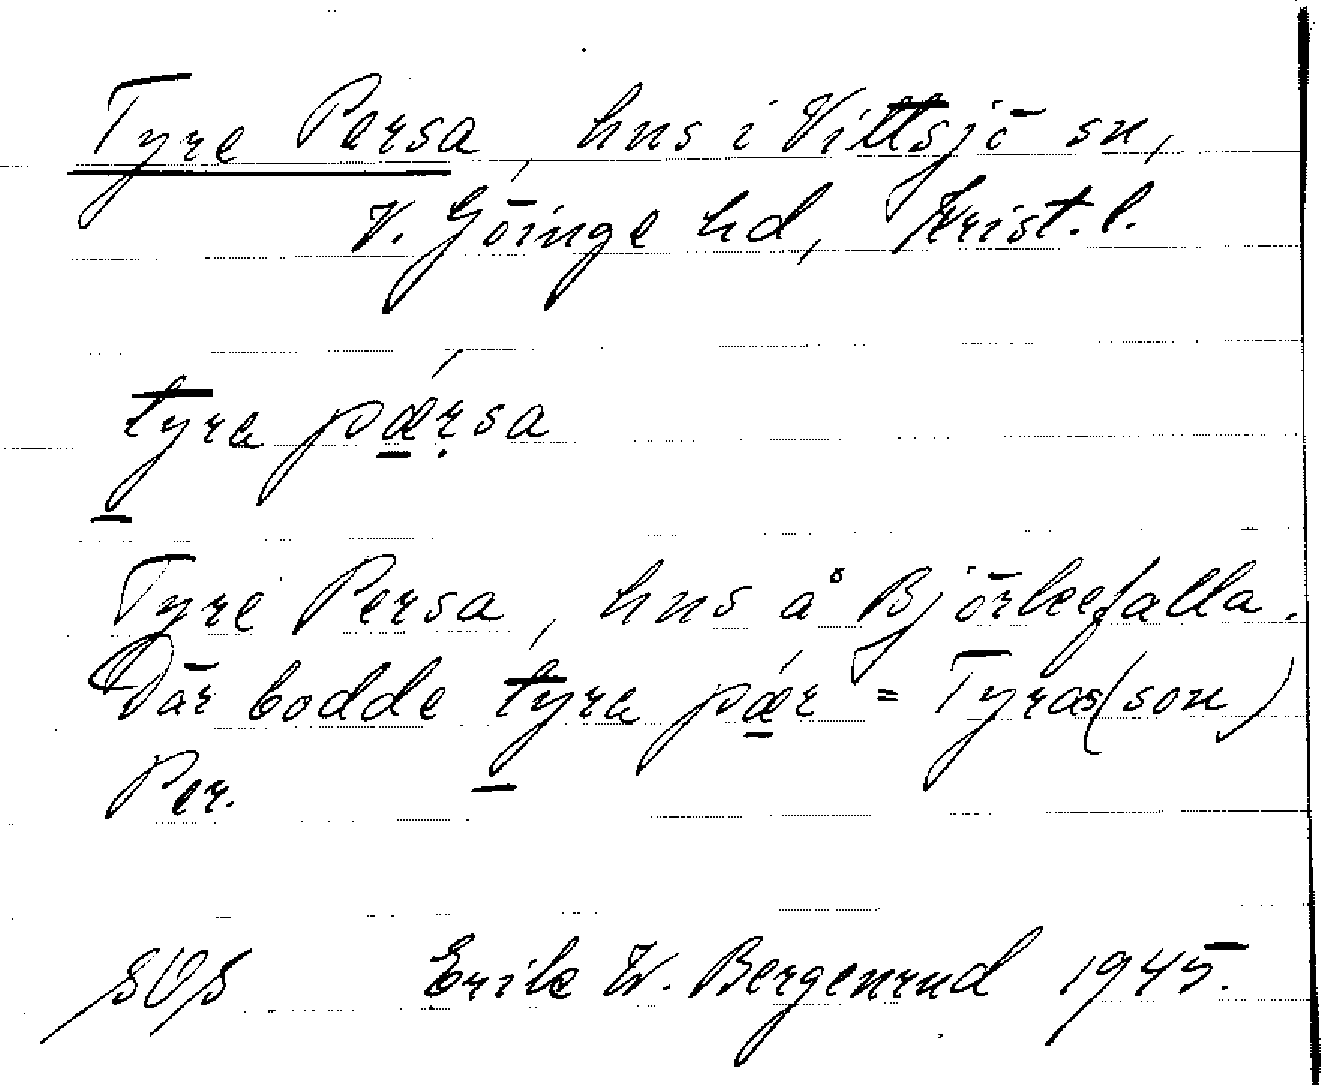 Tyre Persa, hus i Vittsjö sn,
V. Göinge hd, Krist. l.
tyra pærsa
Tyre Persa, hus å Björkefalla.
Där bodde tyra pær = Tyras(son)
Per.
SOS Erik W. Bergenrud 1945.